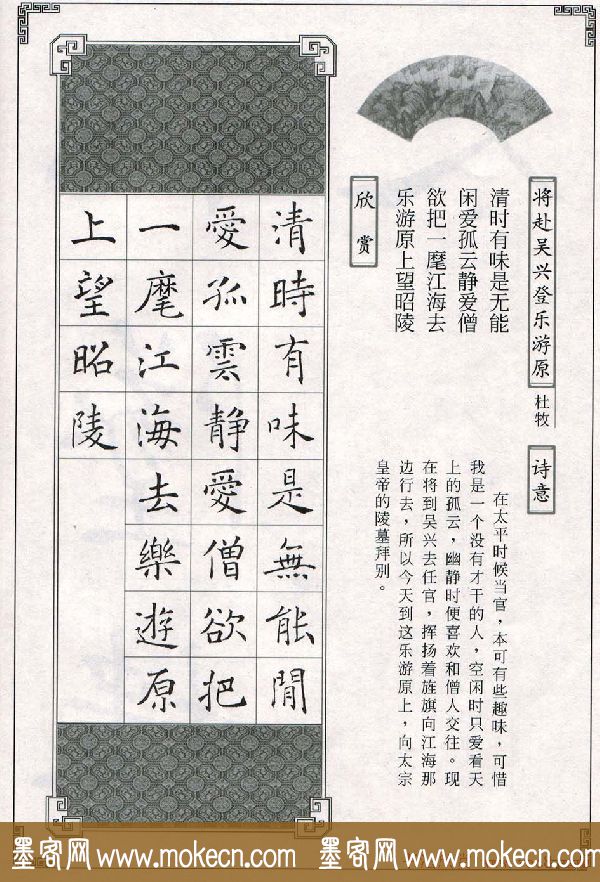 将赴吴兴登乐游原 杜牧
清时有味是无能
闲爱孤云静爱僧
欲把一麾江海去
乐游原上望昭陵
诗意
在太平时候当官，本可有些趣味，可惜
我是一个没有才干的人，空闲时只爱看天
上的孤云，幽静时便喜欢和僧人交往。现
在将到吴兴去任官，挥扬着旌旗向江海那
边行去，所以今天到这乐游原上，向太宗
皇帝的陵墓拜别。
欣赏
清時有味是無能閒
愛孤雲靜愛僧欲把
一麾江海去樂遊原
上望昭陵
墨客网 www.mokecn.com 墨客网 www.mokecn.com